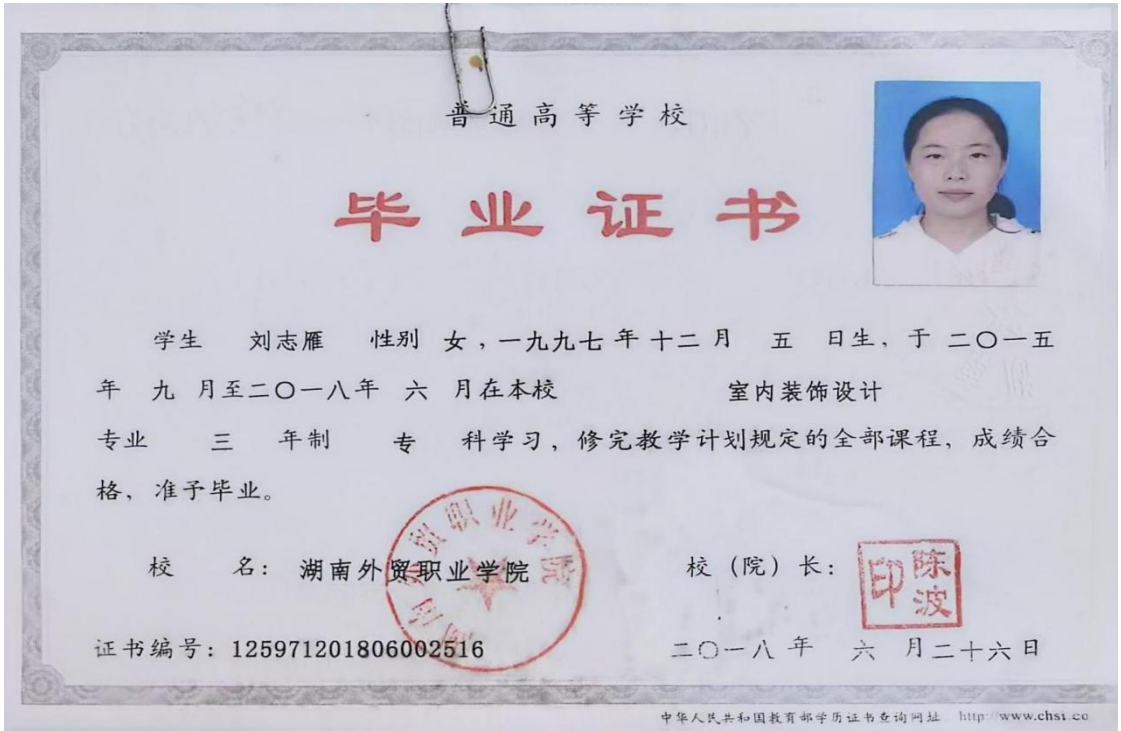 普通高等学校
毕业证书
学生 刘志雁 性别 女，一九九七年十二月 五 日生，于二〇一五
年 九 月至二〇一八年 六 月在本校 室内装饰设计
专业 三 年制 专 科学习，修完教学计划规定的全部课程，成绩合
格，准予毕业。
校 名：湖南外贸职业学院
湖南外贸职业学院
校（院）长：
陈波印
证书编号：125971201806002516
二〇一八年 六 月二十六日
中华人民共和国教育部学历证书查询网址 http://www.chsi.co